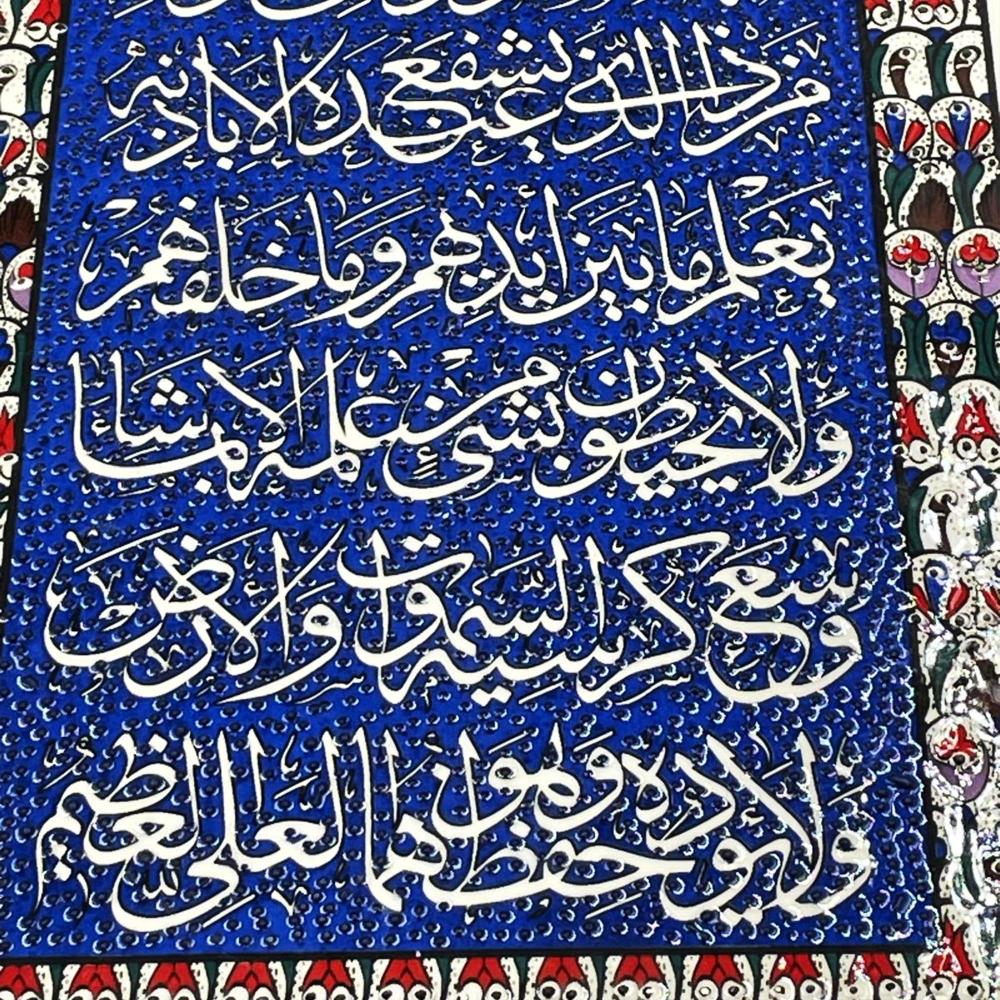 من ذا الذى يشفع عنده الا باذنه
يعلم ما بين ايديهم وما خلفهم
ولا يحيطون بشئ من علمه الا بما شاء
وسع كرسيه السموات والارض
ولا يؤده حفظهما وهو العلى العظيم